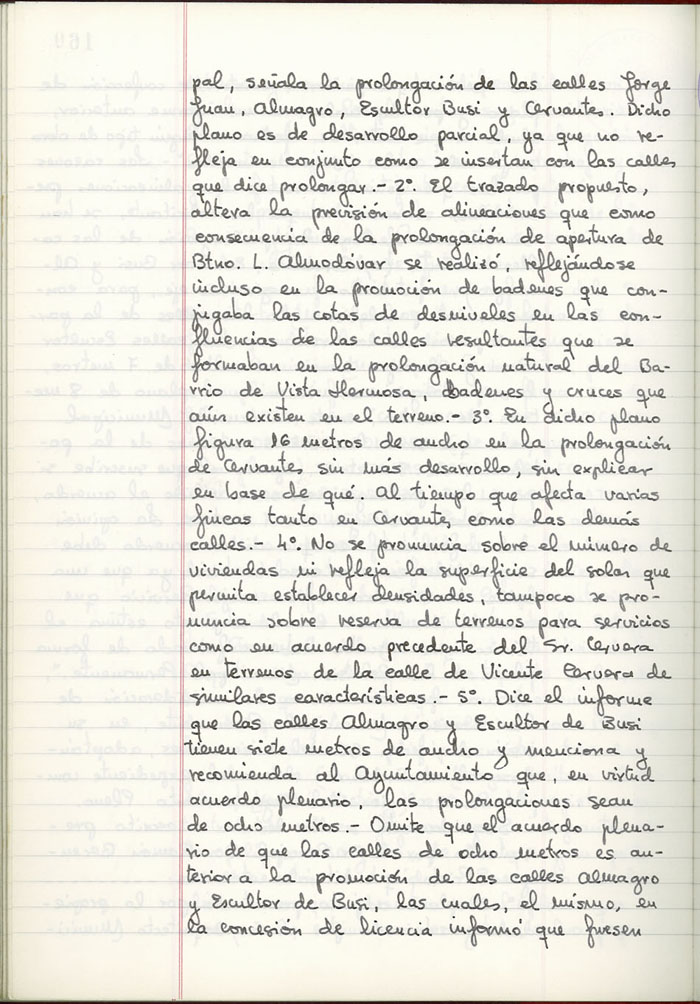 pal, señala la prolongación de las calles Jorge
Juan, Almagro, Escultor Busi y Cervantes. Dicho
plano es de desarrollo parcial, ya que no re-
fleja en conjunto como se insertan con las calles
que dice prolongar.- 2º. El trazado propuesto,
altera la precisión de alineaciones que como
consecuencia de la prolongación de apertura de
Btno. L. Almodóvar se realizó, reflejándose
incluso en la promoción de badenes que con-
jugaba las cotas de desniveles en las con-
fluencias de las calles resultantes que se
formaban en la prolongación natural del Ba-
rrio de Vista Hermosa, badenes y cruces que
aún existen en el terreno.- 3º. En dicho plano
figura 16 metros de ancho en la prolongación
de Cervantes sin más desarrollo, sin explicar
en base de qué. Al tiempo que afecta varias
fincas tanto en Cervantes como las demás
calles.- 4º. No se pronuncia sobre el número de
viviendas ni refleja la superficie del solar que
permita establecer densidades, tampoco se pro-
nuncia sobre reserva de terrenos para servicios
como en acuerdo precedente del Sr. Cervera
en terrenos de la calle de Vicente Cervera de
similares características.- 5º. Dice el informe
que las calles Almagro y Escultor de Busi
tienen siete metros de ancho y menciona y
recomienda al Ayuntamiento que, en virtud
acuerdo plenario, las prolongaciones sean
de ocho metros.- Omite que el acuerdo plena-
rio de que las calles de ocho metros es an-
terior a la promoción de las calles Almagro
y Escultor de Busi, las cuales, el mismo, en
la concesión de licencia informó que fuesen